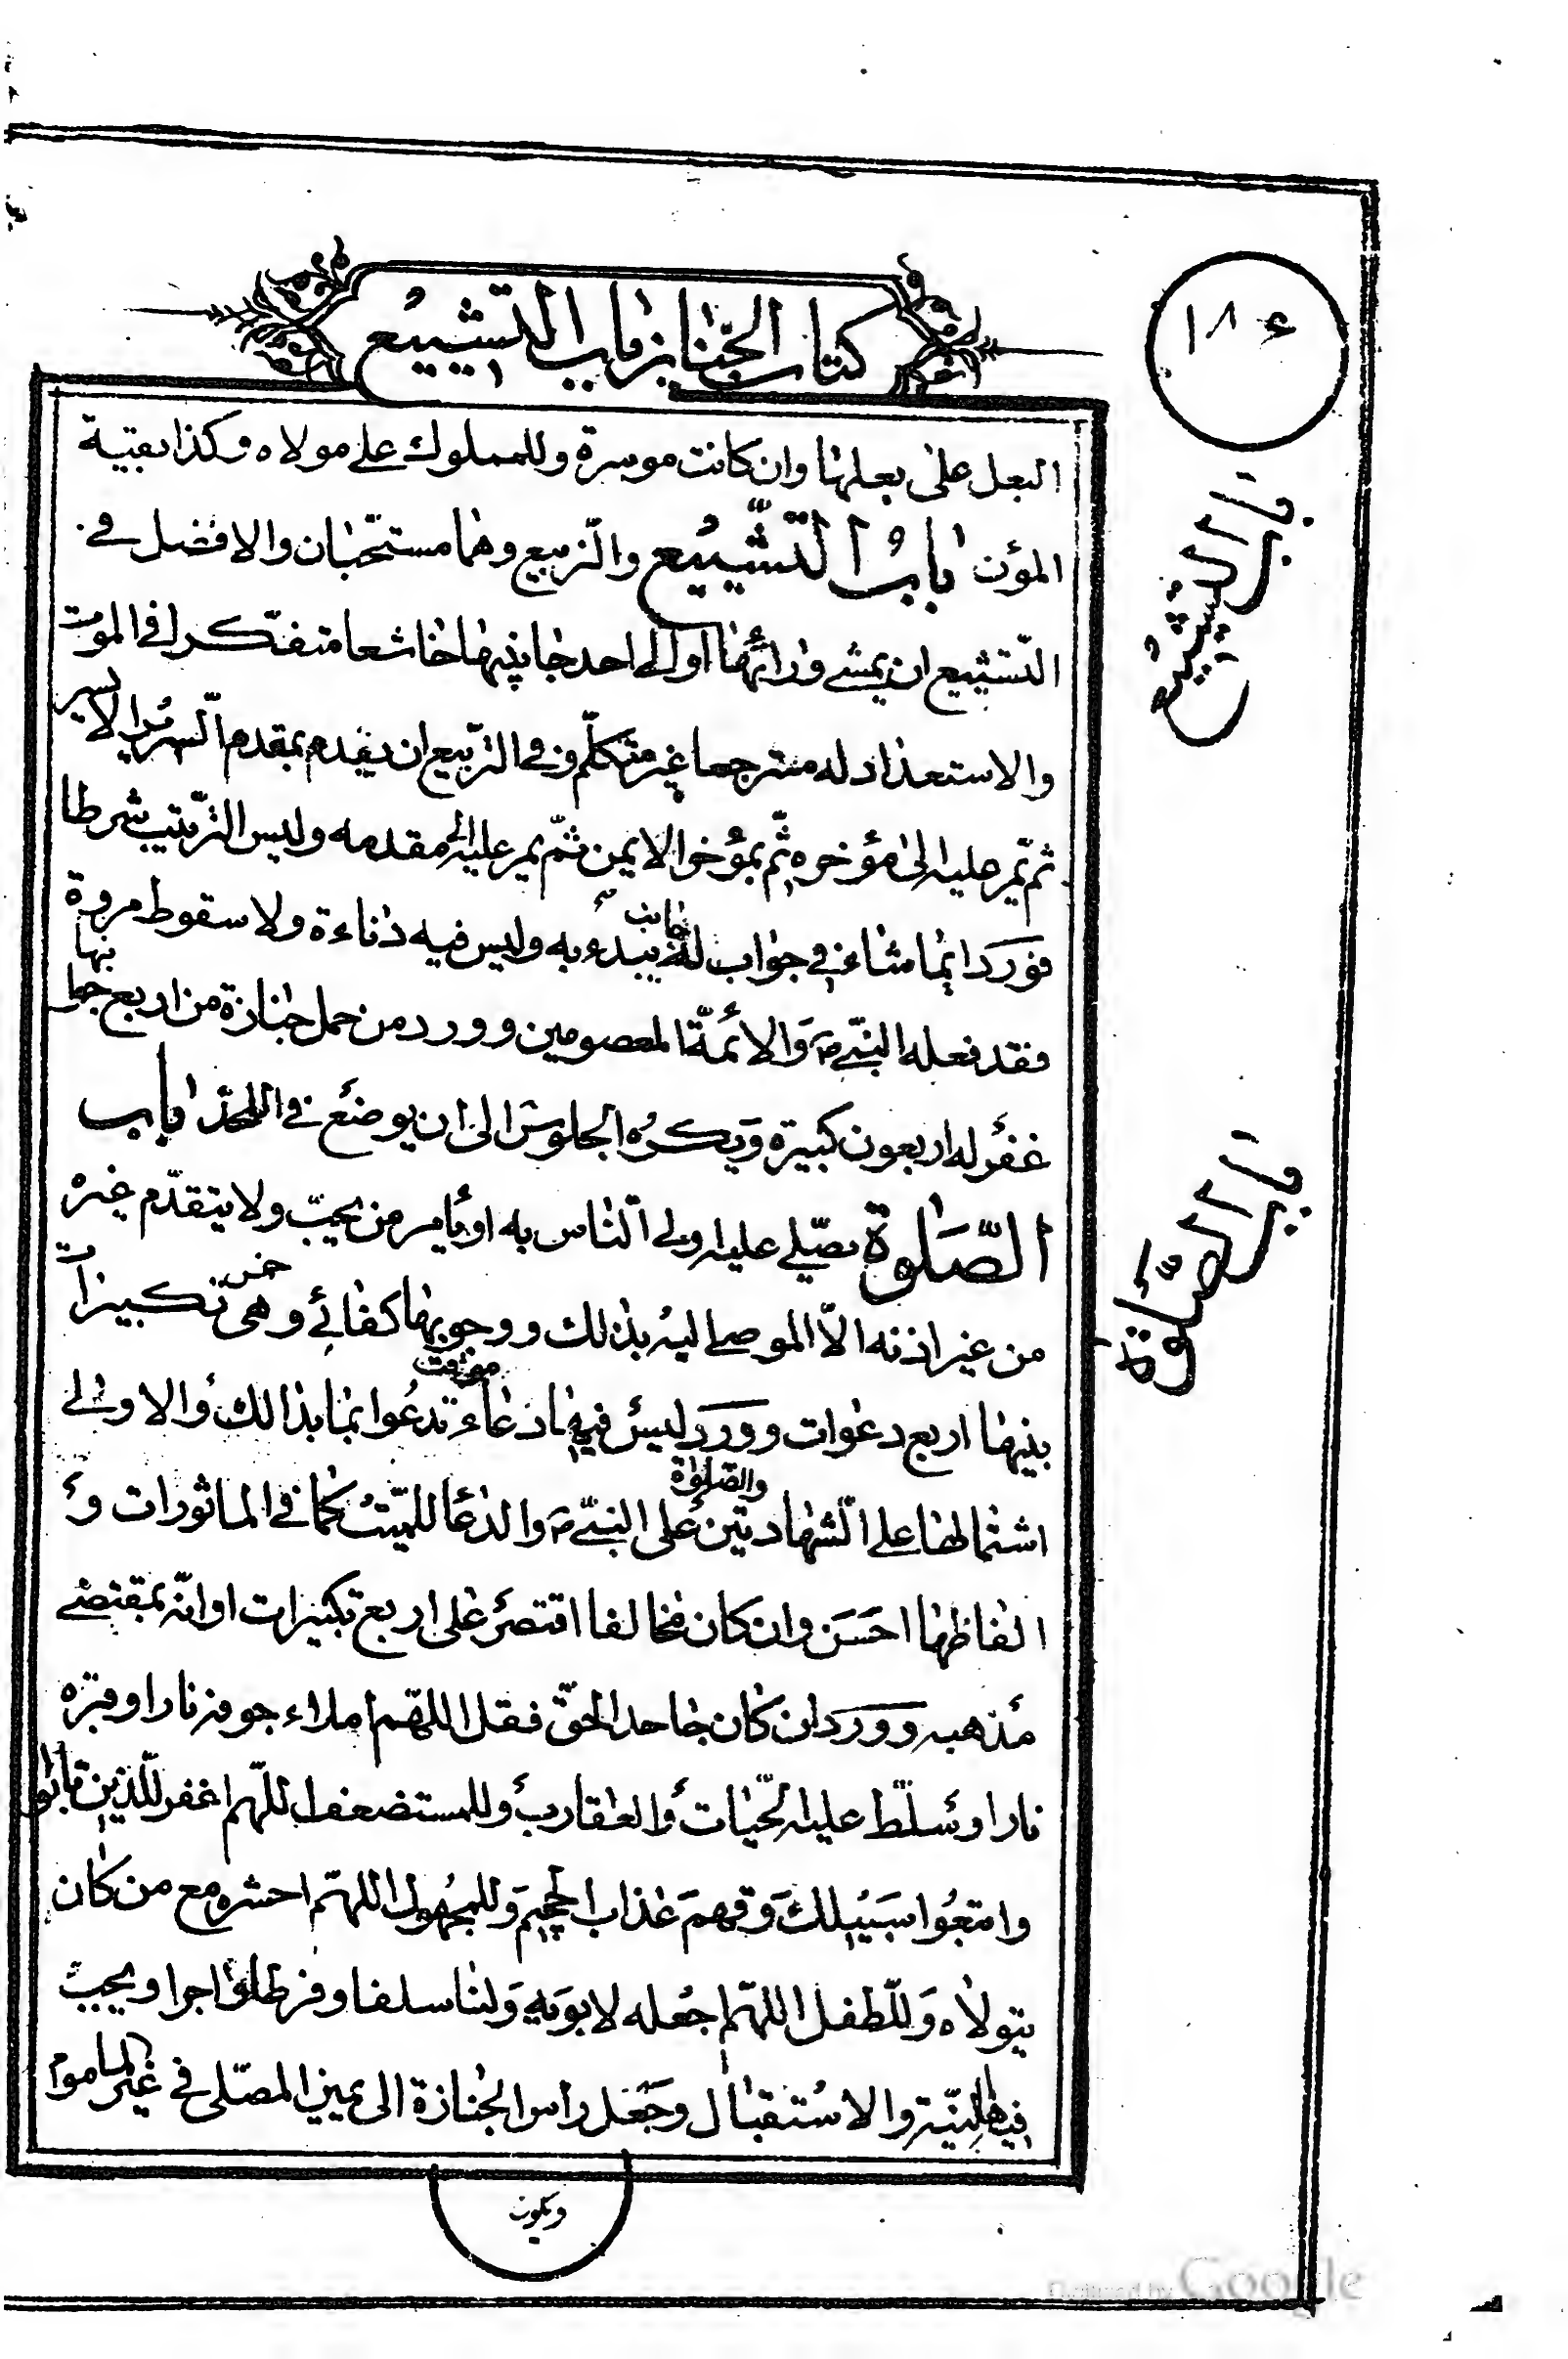 ١٨۶
كتاب الجنايز باب التشييع
البعل على بعلها وان كانت موسرة وللمملوك على مولاه وكذا بقية
المؤن باب التشييع والتربيع وهما مستحبان والافضل في
باب التشييع
التشييع ان يمشي ورائها او الى احد جانبيها خاشعا متفكرا في الموت
والاستعداد له مسترجعا غير متكلم وفي التربيع ان يقدم بمقدم السرير الايسر
ثم يمر عليه الى مؤخره ثم بمؤخر الايمن ثم يمر عليه الى مقدمه وليس الترتيب شرطا
فورد ايما شاء في جوانب يبدء به وليس فيه دناءة ولا سقوط مروة
فقد فعله النبي ص والائمة المعصومين وورد من حمل جنازة من اربع جوانبها
غفر له اربعون كبيرة ويكره الجلوس الى ان يوضع في اللحد باب
الصلوة يصلي عليه ولي الناس به او يامر من يحب ولا يتقدم غيره
باب الصلوة
من غير اذنه الا الموصى اليه بذلك ووجوبها كفائي وهي خمس تكبيرات
بينها اربع دعوات وورد ليس فيها دعاء موقت تدعوا بما بدالك والاولى
اشتمالها على الشهادتين والصلوة على النبي ص والدعا للميت كما في الماثورات و
الفاظها احسن وان كان مخالفا اقتصر على اربع تكبيرات او انه بمقتضى
مذهبه وورد ان كان جاحد الحق فقل اللهم املاء جوفه نارا وقبره
نارا وسلط عليه الحيات والعقارب وللمستضعف اللهم اغفر للذين تابوا
واتبعوا سبيلك وقهم عذاب الجحيم وللمجهول اللهم احشره مع من كان
يتولاه وللطفل اللهم اجعله لابويه ولنا سلفا وفرطا واجرا ويجب
فيها النية والاستقبال وجعل راس الجنازة الى يمين المصلى في غير الماموم
ويكون
Digitized by Google